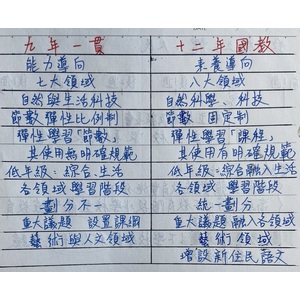 九年一貫
能力導向
七大領域
自然與生活科技
節數 彈性比例制
彈性學習「節數」
其使用無明確規範
低年級:綜合、生活
各領域 學習階段
劃分不一
重大議題 設置課綱
藝術與人文領域
十二年國教
素養導向
八大領域
自然科學、科技
節數 固定制
彈性學習「課程」
其使用有明確規範
低年級:綜合融入生活
各領域 學習階段
統一劃分
重大議題融入各領域
藝術領域
增設新住民語文